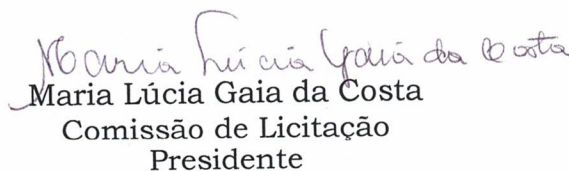 Maria Lúcia Gaia da Costa
Maria Lúcia Gaia da Costa
Comissão de Licitação
Presidente